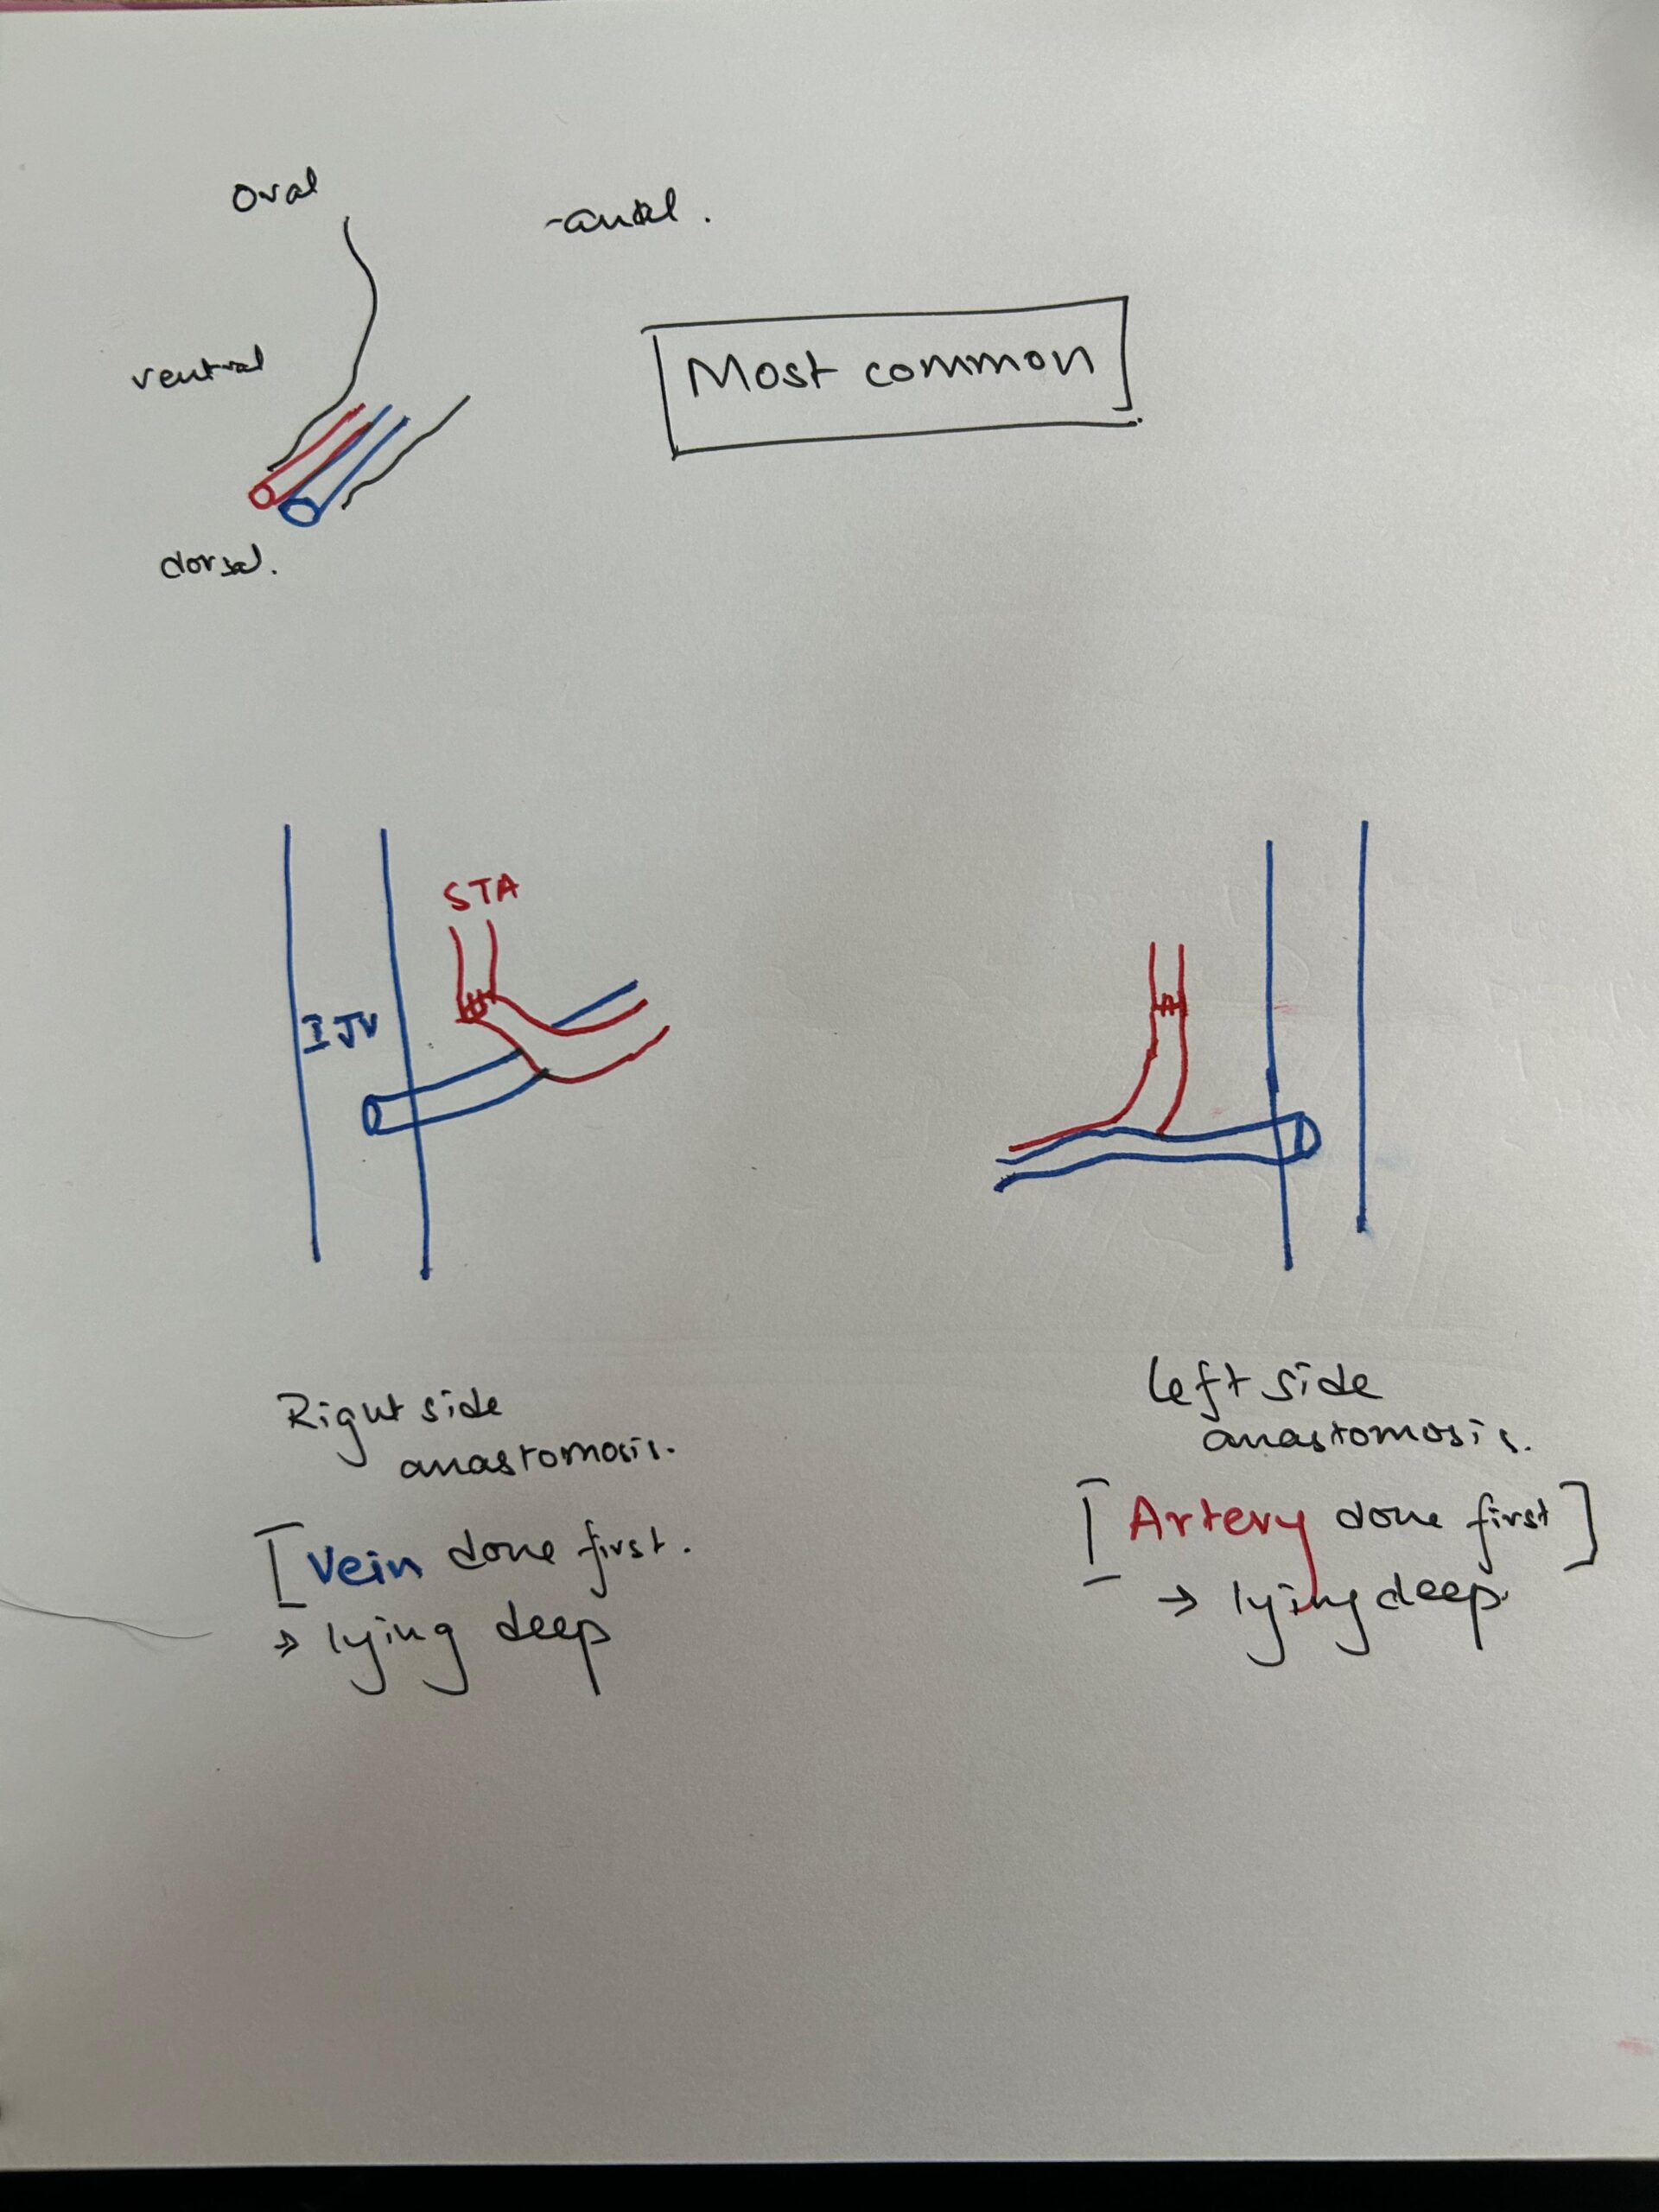 oral
ventral
dorsal.
Most common
STA
IJV
Right side
anastomosis.
[Vein done first.
→ lying deep
left side
anastomosis.
[Artery done first]
→ lying deep